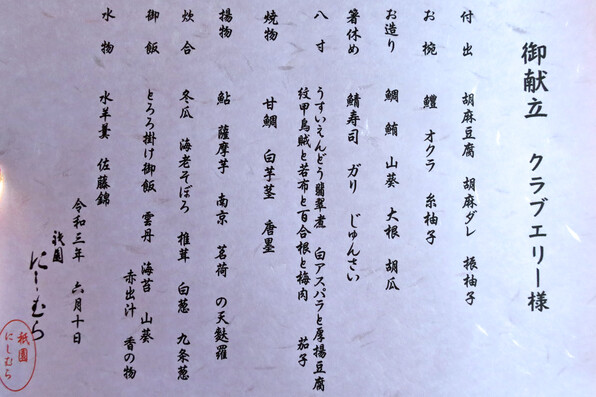 御献立 クラブエリー様
付出 胡麻豆腐 胡麻ダレ 振柚子
お椀 鱧 オクラ 糸柚子
お造り 鯛 鮪 山葵 大根 胡瓜
箸休め 鯖寿司 ガリ じゅんさい
八寸 うすいえんどう翡翠煮 白アスパラと厚揚豆腐
紋甲烏賊と若布と百合根と梅肉 茄子
焼物 甘鯛 白芋茎 唐墨
揚物 鮎 薩摩芋 南京 茗荷 の天麩羅
炊合 冬瓜 海老そぼろ 椎茸 白葱 九条葱
御飯 とろろ掛け御飯 雲丹 海苔 山葵
赤出汁 香の物
水物 水羊羹 佐藤錦
令和三年 六月十日
祇園
にしむら
祇園
にしむら